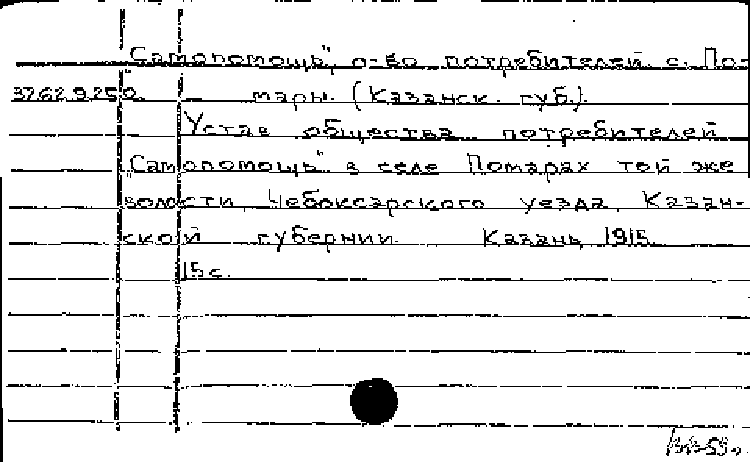 "Самопомощь", о-во потребителей с. По-
37.62.9.25.0. мары. (Казанск. губ.).
Устав общества потребителей
"Самопомощь" в селе Помарах той же
волости, Чебоксарского уезда, Казан-
ской губернии. Казань, 1915.
15 с.